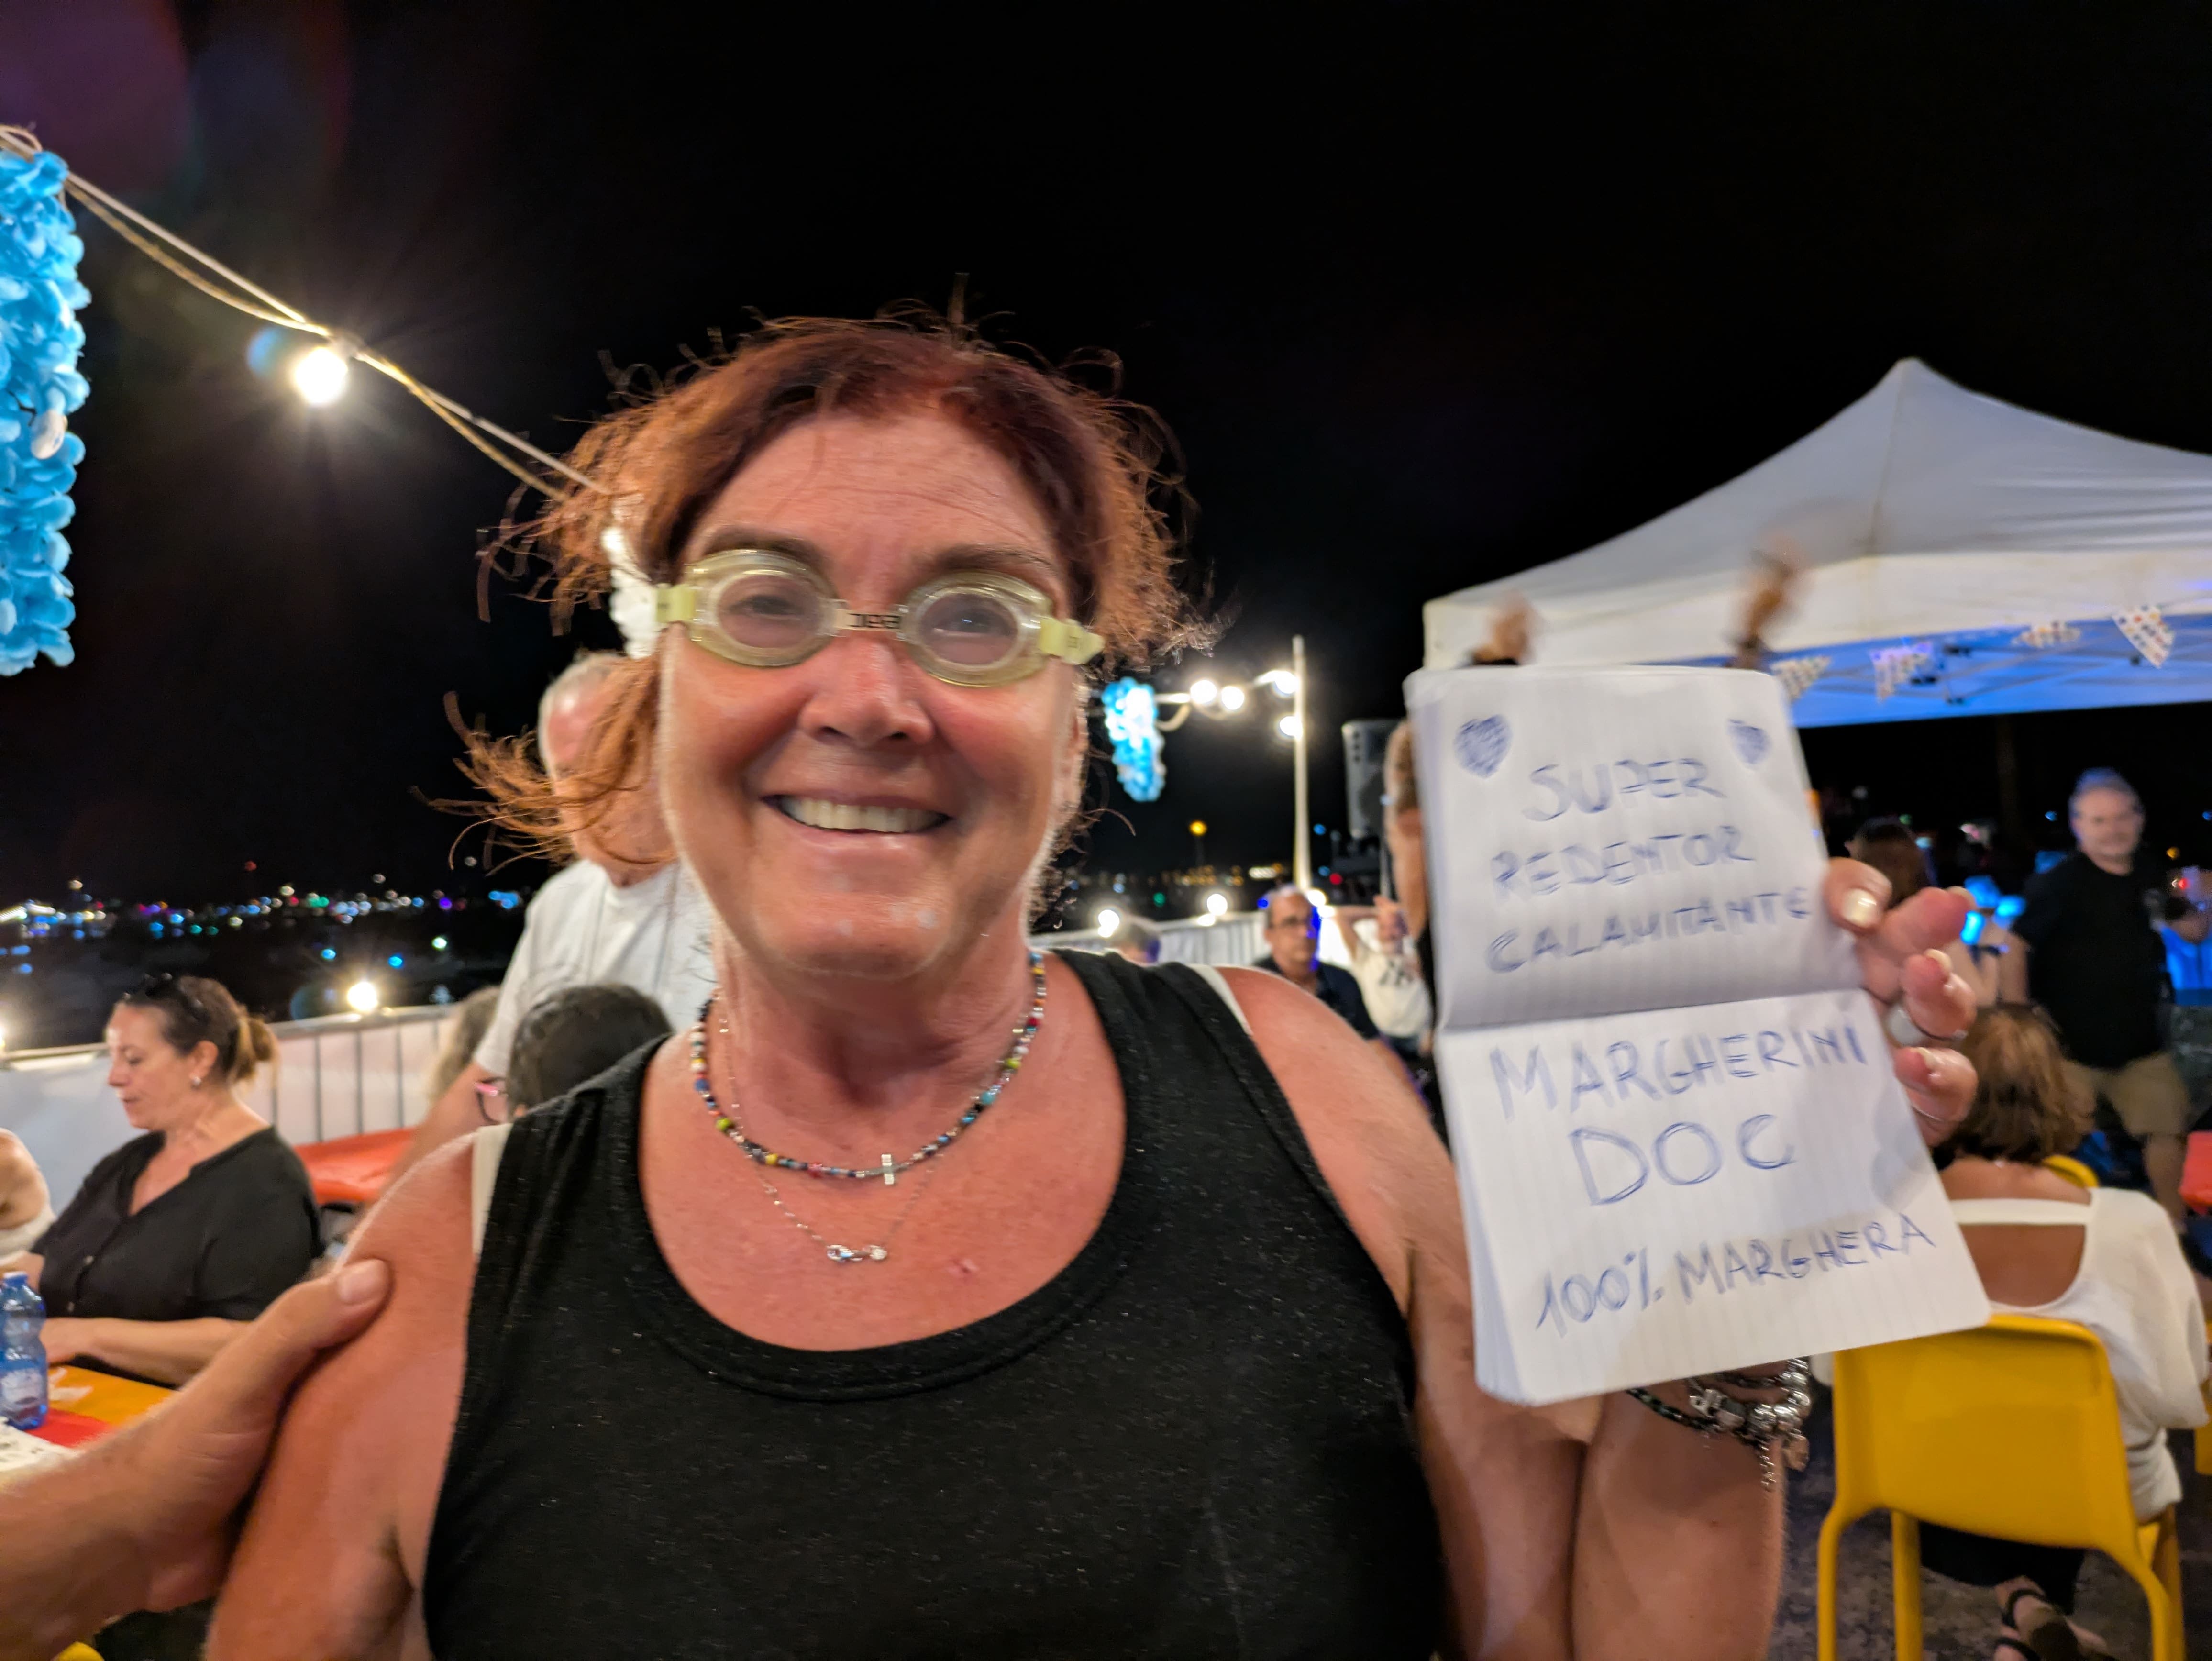 SUPER
REDENTOR
CALAMITANTE
MARGHERINI
DOC
100% MARGHERA